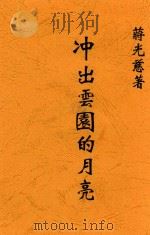 蔣光慈著
冲出雲圍的月亮
www.mtoou.info